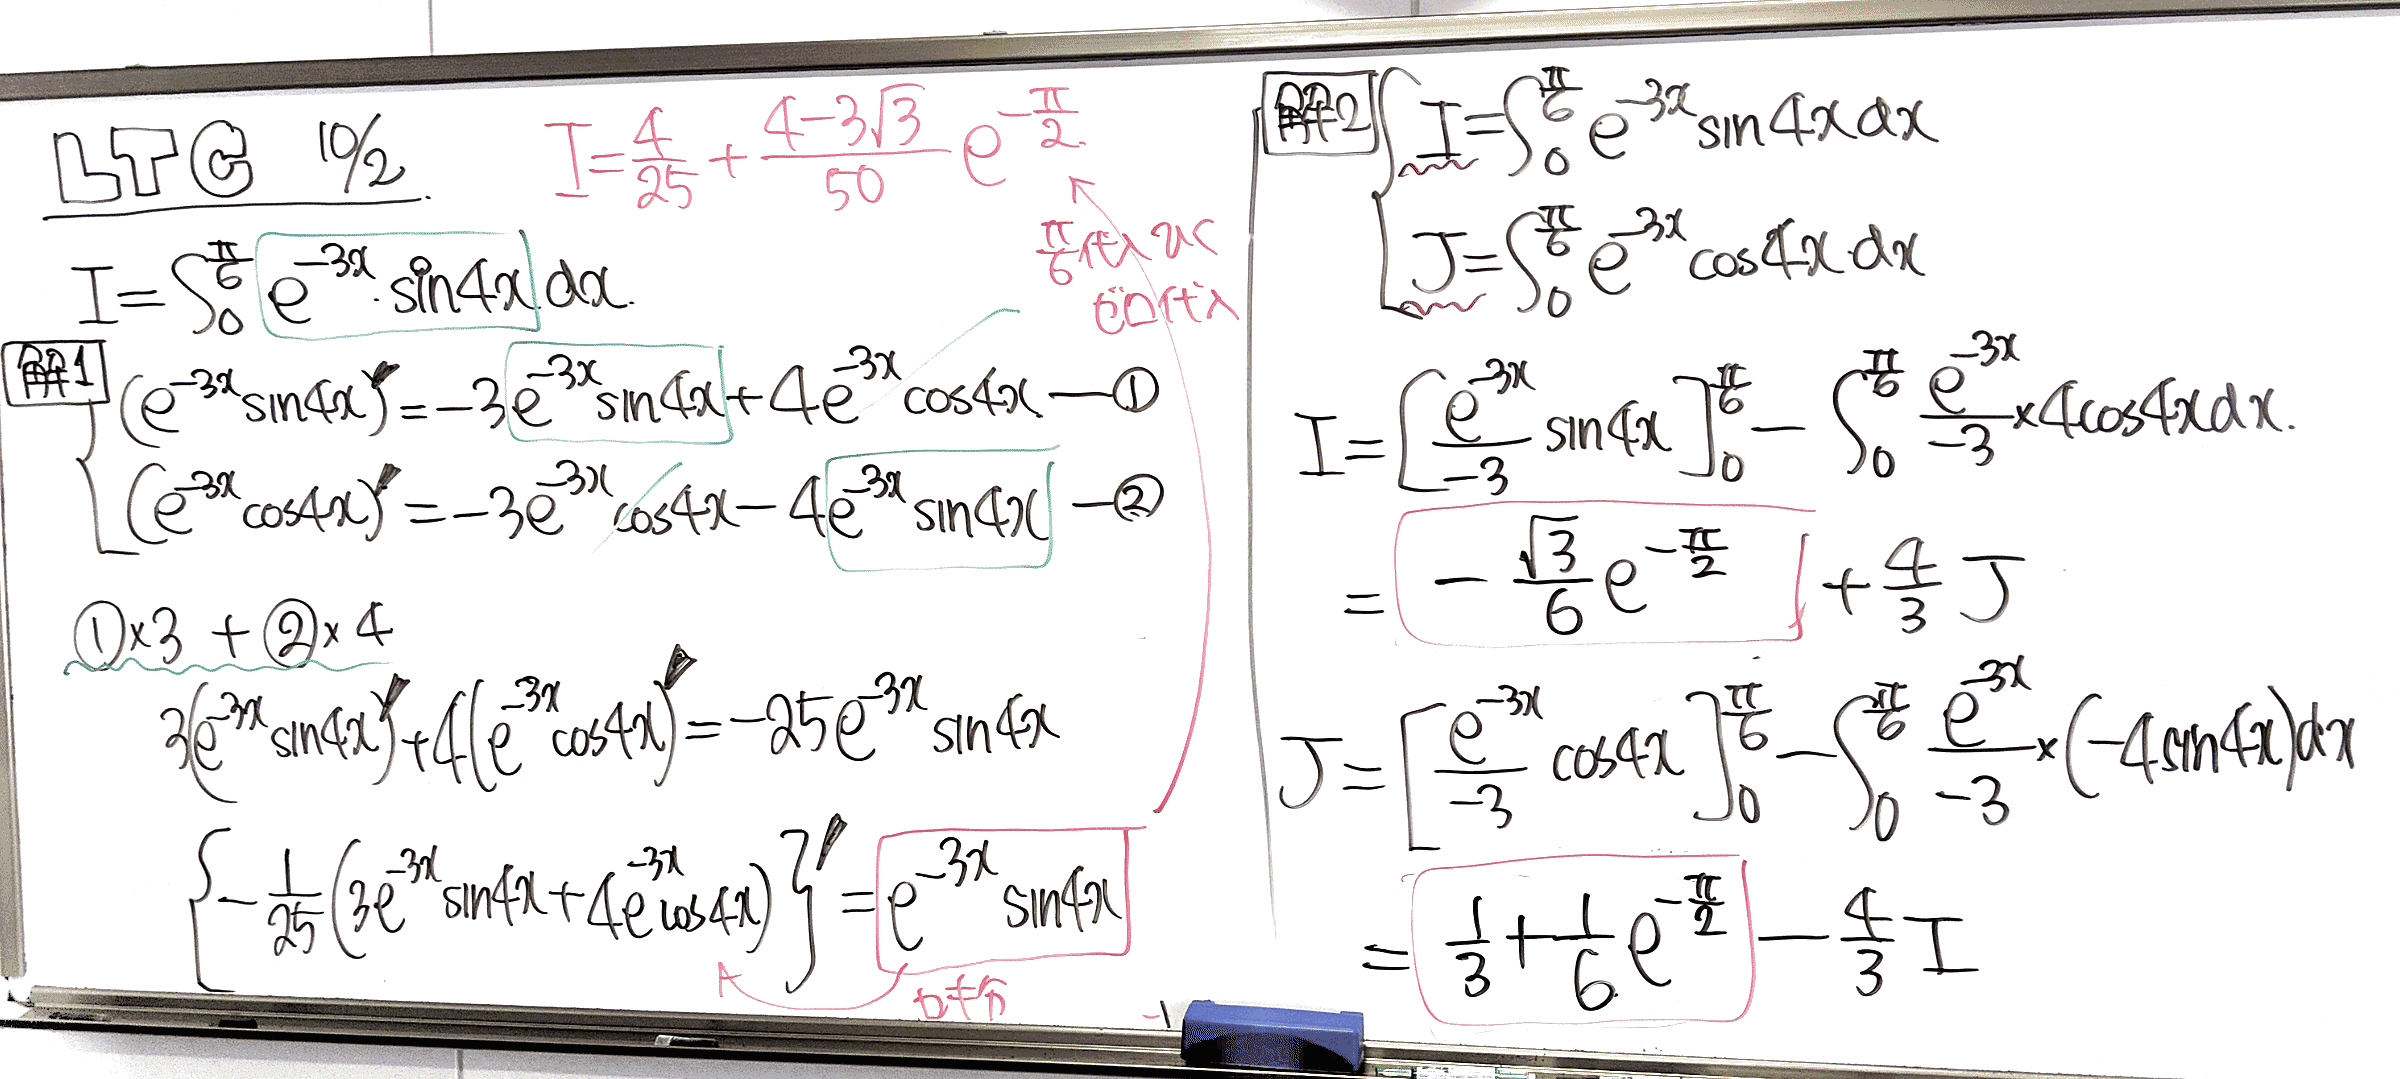 LTC 10/2.
I=4/25+(4-3√3)/50 e^{-π/2}.
π/6代入ひく
0代入
I=∫_0^{π/6} e^{-3x}·sin4x dx.
解1
(e^{-3x}sin4x)'=-3e^{-3x}sin4x+4e^{-3x}cos4x―①
(e^{-3x}cos4x)'=-3e^{-3x}cos4x-4e^{-3x}sin4x―②
①×3+②×4
3(e^{-3x}sin4x)'+4(e^{-3x}cos4x)'=-25e^{-3x}sin4x
{-1/25(3e^{-3x}sin4x+4e^{-3x}cos4x)}'=e^{-3x}sin4x
解2
I=∫_0^{π/6} e^{-3x}sin4x dx
J=∫_0^{π/6} e^{-3x}cos4x dx
I=[e^{-3x}/-3 sin4x]_0^{π/6}-∫_0^{π/6} e^{-3x}/-3×4cos4x dx.
=-√3/6 e^{-π/2}+4/3 J
J=[e^{-3x}/-3 cos4x]_0^{π/6}-∫_0^{π/6} e^{-3x}/-3×(-4sin4x)dx
=1/3+1/6 e^{-π/2}-4/3 I